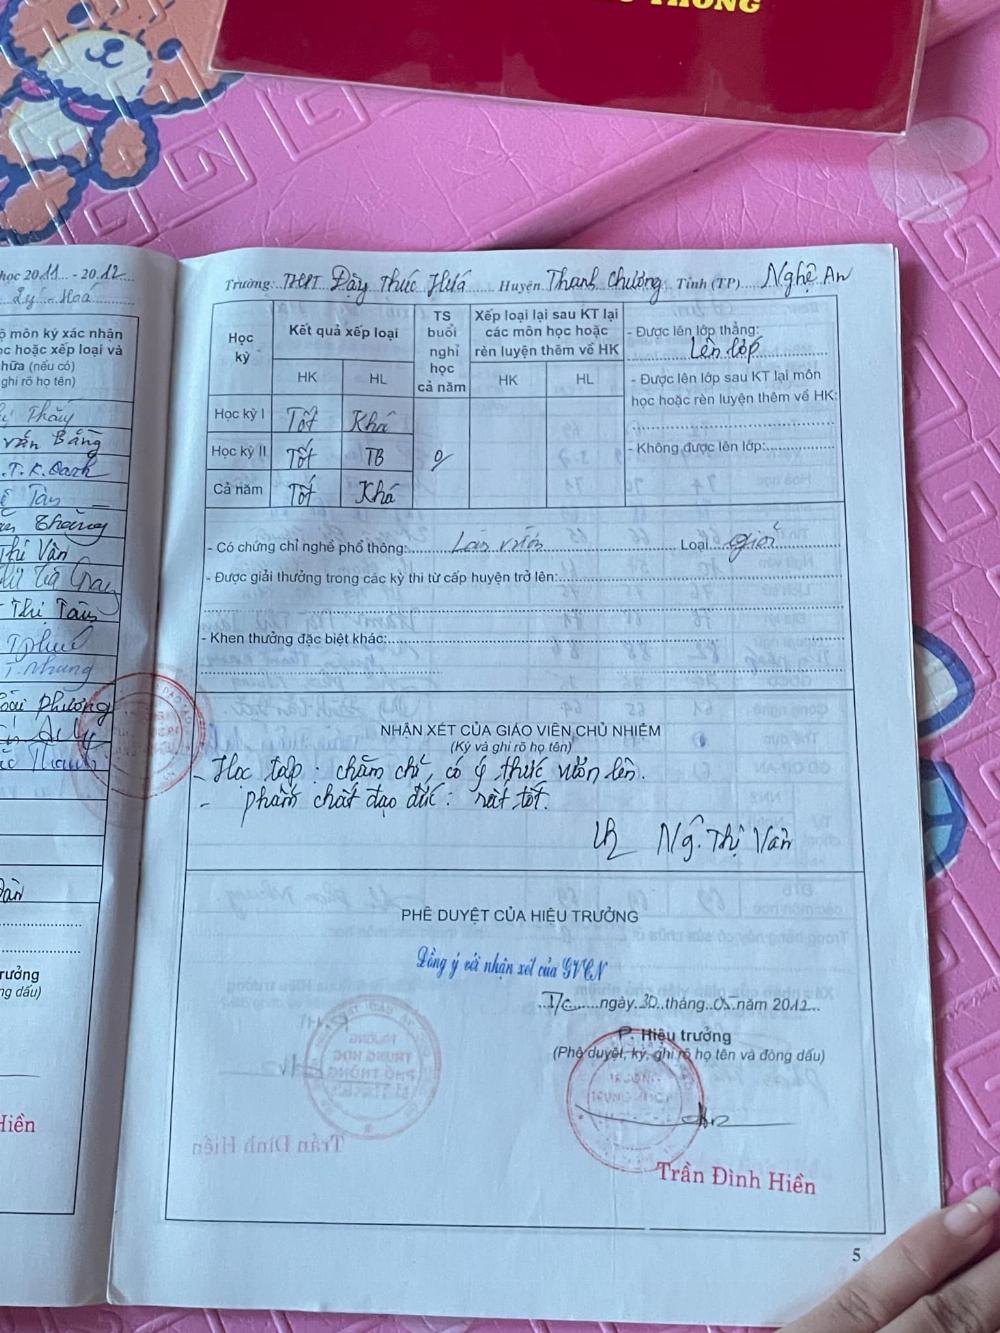 THÔNG
học 2011 - 2012
Lý - Hoá
ộ môn ký xác nhận
ọc hoặc xếp loại và
hữa (nếu có)
ghi rõ họ tên)
văn Bằng
.T.K.Oanh
Thị Vân
Thị Tám
T. Nhung
rưởng
ng dấu)
Hiền
Trường: THPT Đặng Thúc Hứa Huyện Thanh Chương Tỉnh (TP) Nghệ An
Học kỳ
Kết quả xếp loại
HK HL
TS buổi nghỉ học cả năm
Xếp loại lại sau KT lại các môn học hoặc rèn luyện thêm về HK
HK HL
- Được lên lớp thẳng:
Lên lớp
- Được lên lớp sau KT lại môn
học hoặc rèn luyện thêm về HK:
- Không được lên lớp:
Học kỳ I Tốt Khá
Học kỳ II Tốt TB
Cả năm Tốt Khá
- Có chứng chỉ nghề phổ thông: Làm vườn Loại Giỏi
- Được giải thưởng trong các kỳ thi từ cấp huyện trở lên:
- Khen thưởng đặc biệt khác:
NHẬN XÉT CỦA GIÁO VIÊN CHỦ NHIỆM
(Ký và ghi rõ họ tên)
- Học tập: chăm chỉ, có ý thức vươn lên.
- phẩm chất đạo đức: rất tốt.
Ng. Thị Vân
PHÊ DUYỆT CỦA HIỆU TRƯỞNG
Đồng ý với nhận xét của GVCN
T/C ngày 30 tháng 05 năm 2012
P. Hiệu trưởng
(Phê duyệt, ký, ghi rõ họ tên và đóng dấu)
Trần Đình Hiền
5